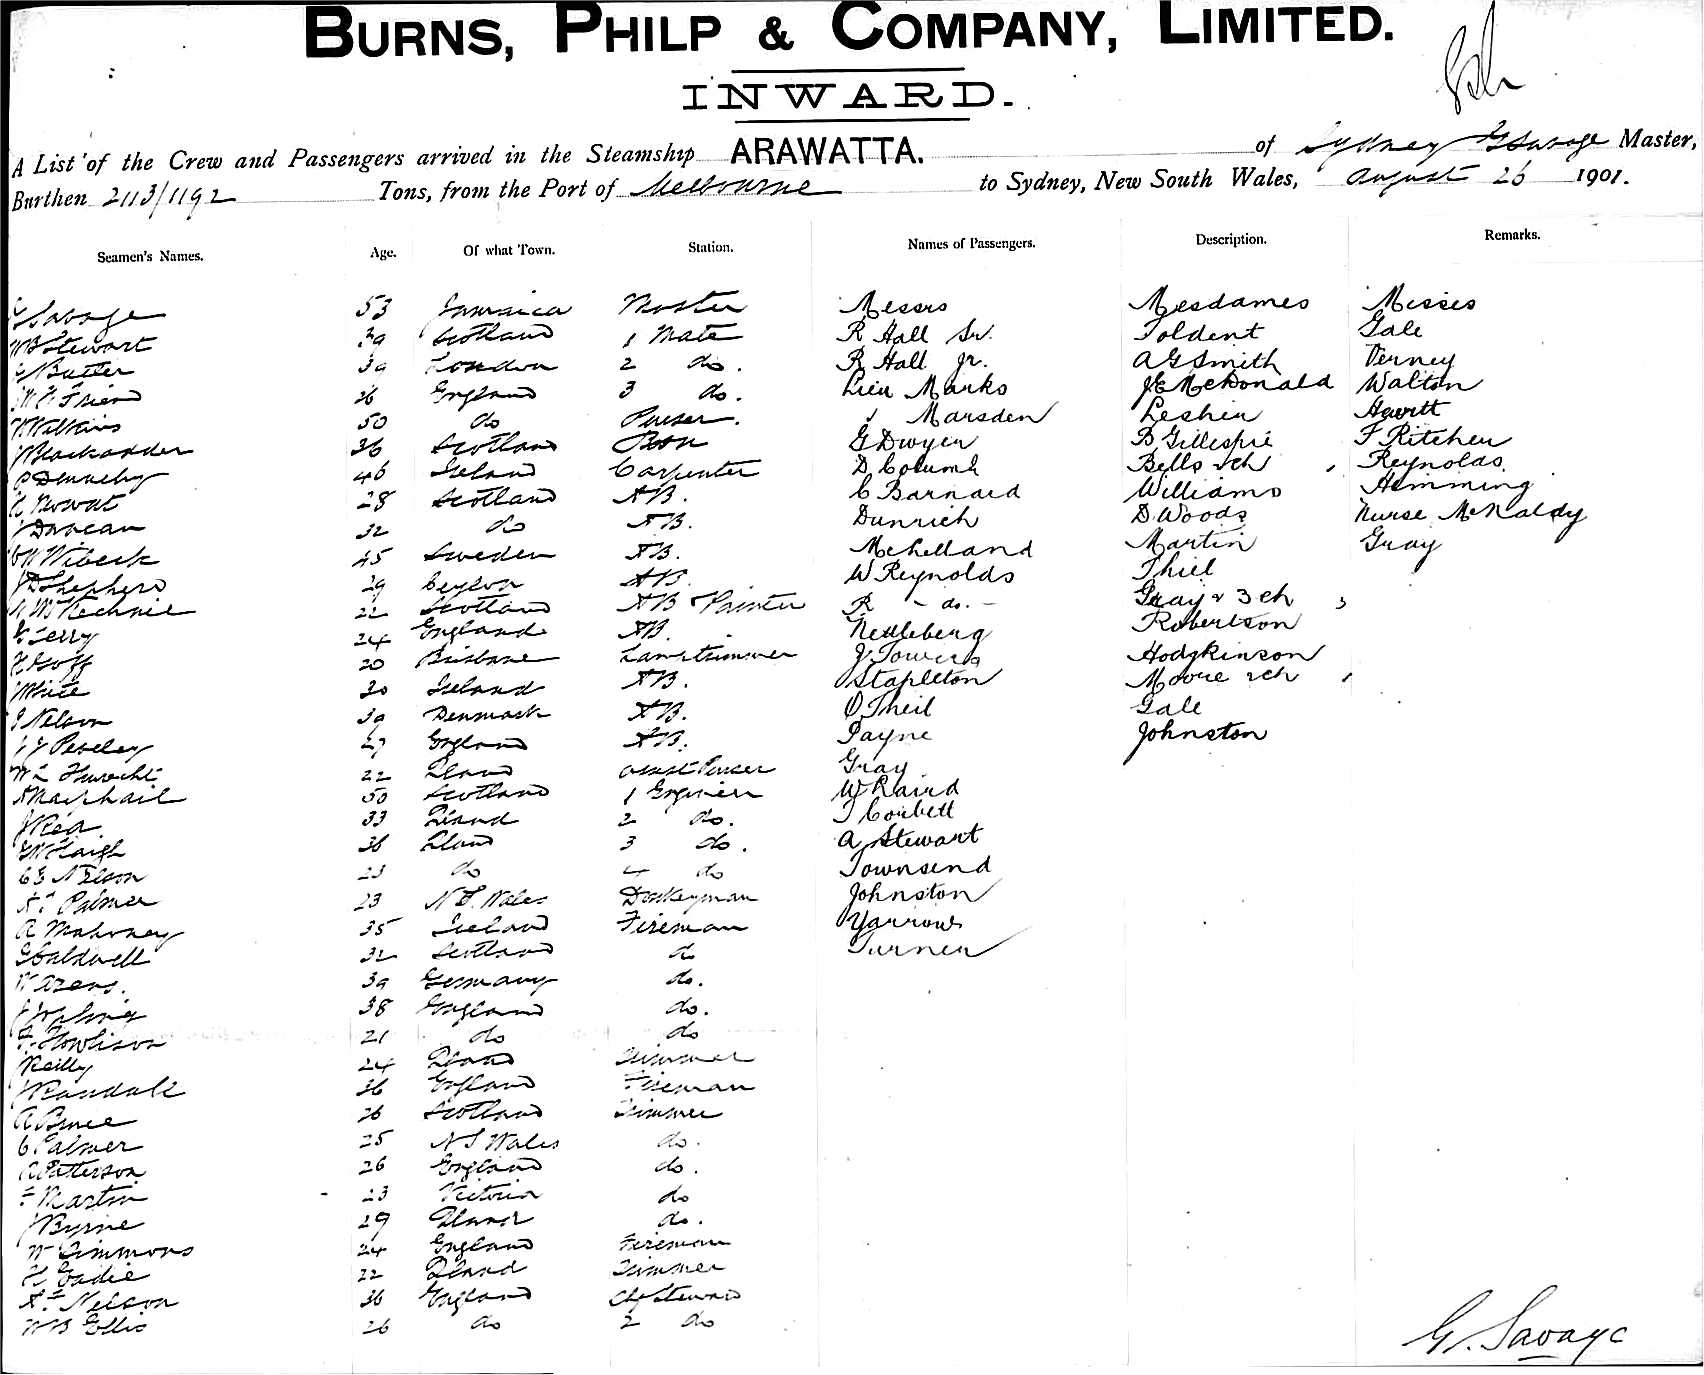 BURNS, PHILP & COMPANY, LIMITED.
INWARD.
A List of the Crew and Passengers arrived in the Steamship ARAWATTA. of Sydney G Savage Master,
Burthen 2113/1192 Tons, from the Port of Melbourne to Sydney, New South Wales, August 26 1901.
Seamen's Names. Age. Of what Town. Station. Names of Passengers. Description. Remarks.
G Savage 53 Jamaica Master Messrs Mesdames Misses
Stewart 39 Scotland 1 Mate R Hall Sr. Toldent Gale
Butter 39 London 2 do. R Hall Jr. A G Smith Verney
Friend 26 England 3 do. Lieu Marks J E McDonald Walton
Wilkins 50 do Purser. Marsden Leshin Hewitt
J Blackadder 36 Scotland Bosn G Dwyer B Gillespie F Ritchie
P Dennehy 46 Ireland Carpenter D Columb Bells & ch Reynolds.
Mowat 28 Scotland AB. C Barnard Williams Hemming
J Duncan 32 do AB. Dunrich D Woods Nurse McNaldy
Wibeck 45 Sweden AB. McLelland Martin Gray
Shepherd 29 Ceylon AB. W Reynolds Thiel
McKechnie 22 Scotland AB & Painter R - do. - Gray & 3 ch
Terry 24 England AB. Nettleberg Robertson
Goff 20 Brisbane Lamptrimmer J Towers Hodgkinson
White 30 Ireland AB. Stapleton Moore & ch
J Nelson 39 Denmark AB. O Theil Gale
Peveley 27 England AB. Payne Johnston
22 Qland asst Purser Gray
A Macphail 50 Scotland 1 Engineer W Laird
J Rea. 33 Qland 2 do. T Corbett
Haigh 36 Qland 3 do. A Stewart
C E Nelson 23 do 4 do Townsend
Palmer 23 N S. Wales Donkeyman Johnston
A Mahoney 35 Ireland Fireman Yarrow
G Caldwell 32 Scotland do Turner
Arens. 39 Germany do.
J Jopling 38 England do.
F Howlison 21 do do
Reilly 24 Qland Trimmer
J Randall 36 England Fireman
A Bruce 26 Scotland Trimmer
C Palmer 25 N S Wales do.
A Patterson 26 England do.
F Martin 23 Victoria do
J Byrne 29 Qland do.
W Simmons 24 England Fireman
H Eadie 22 Qland Trimmer
Nelson 36 England Chf Steward
W B Ellis 26 do 2 do
G. Savage